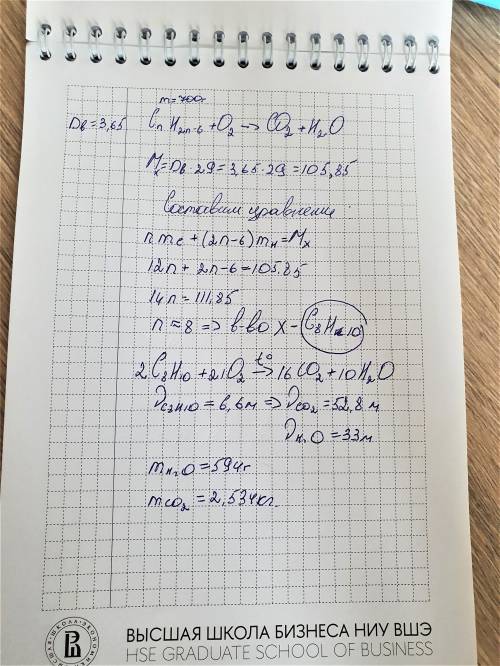 m=700г
Dв=3,65 CnH2n-6+O2→CO2+H2O
Mx=Dв·29=3,65·29=105,85
Составим уравнение:
n mc+(2n-6)mн=Mx
12n+2n-6=105.85
14n=111,85
n≈8 => в-во X-C8H10
2C8H10+21O2 t°→ 16CO2+10H2O
νC8H10=6,6м => νCO2=52,8 м
νH2O=33м
mH2O=594г
mCO2=2,534кг.
ВЫСШАЯ ШКОЛА БИЗНЕСА НИУ ВШЭ
HSE GRADUATE SCHOOL OF BUSINESS